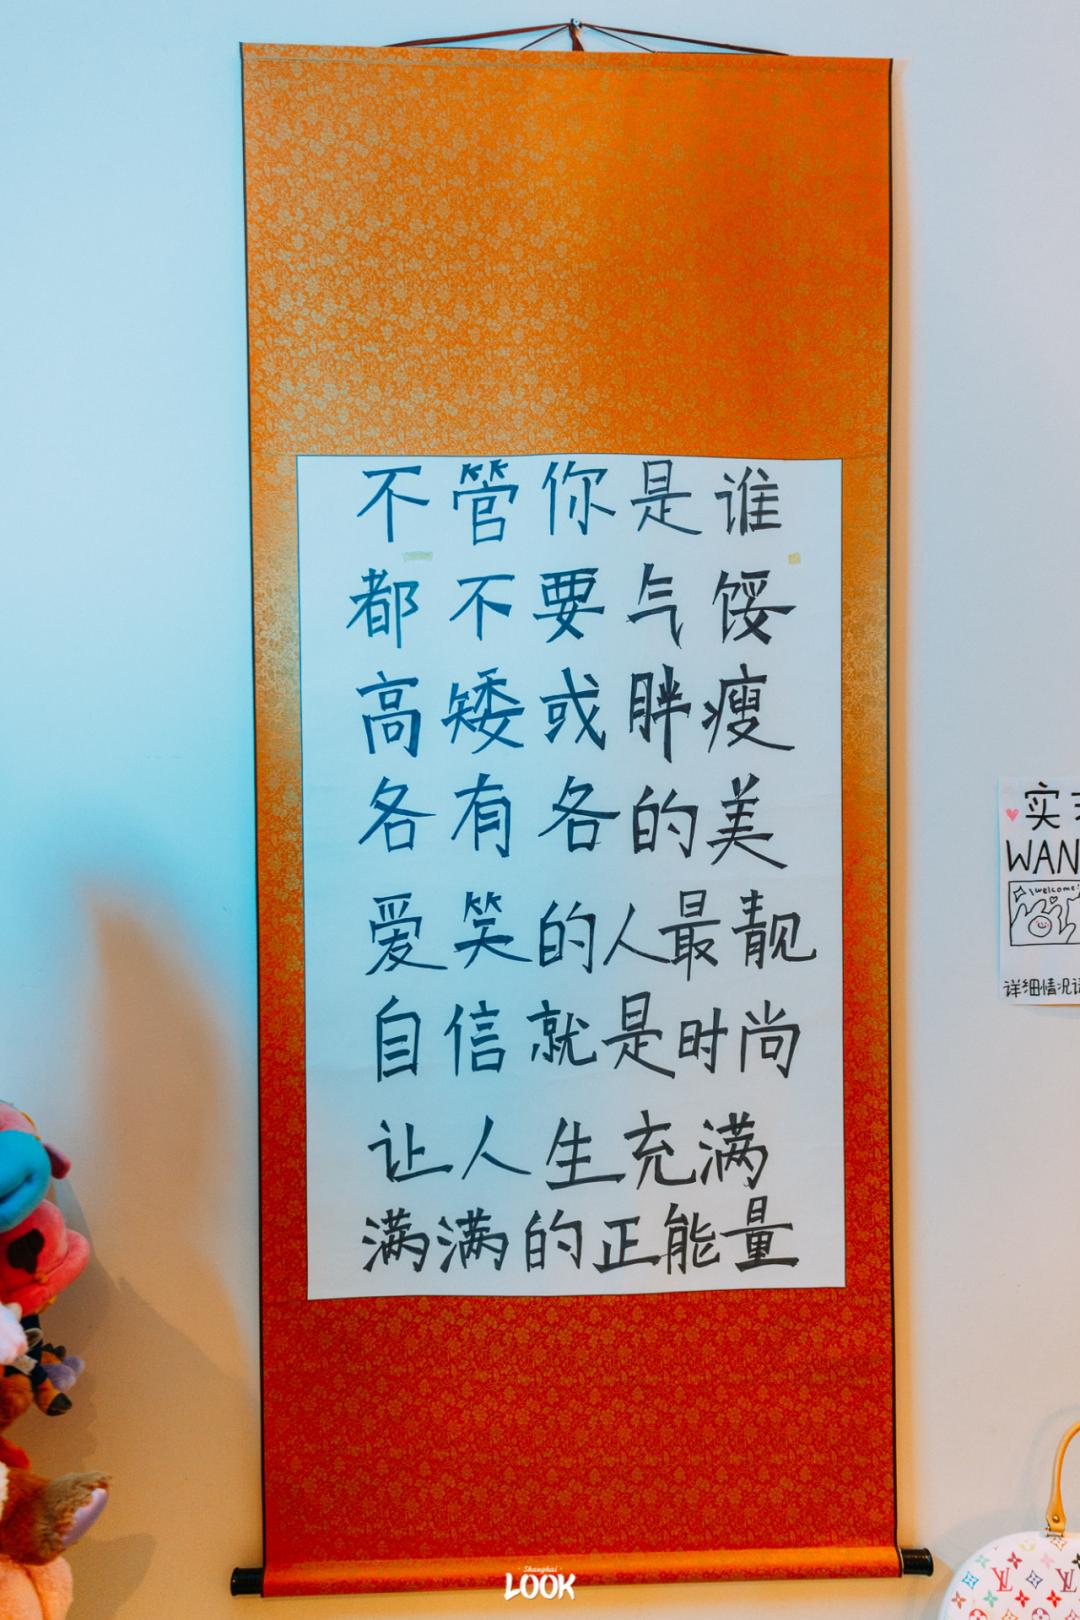 不管你是谁
都不要气馁
高矮或胖瘦
各有各的美
爱笑的人最靓
自信就是时尚
让人生充满
满满的正能量
实
WAN
welcome
详细情况
Shanghai
LOOK